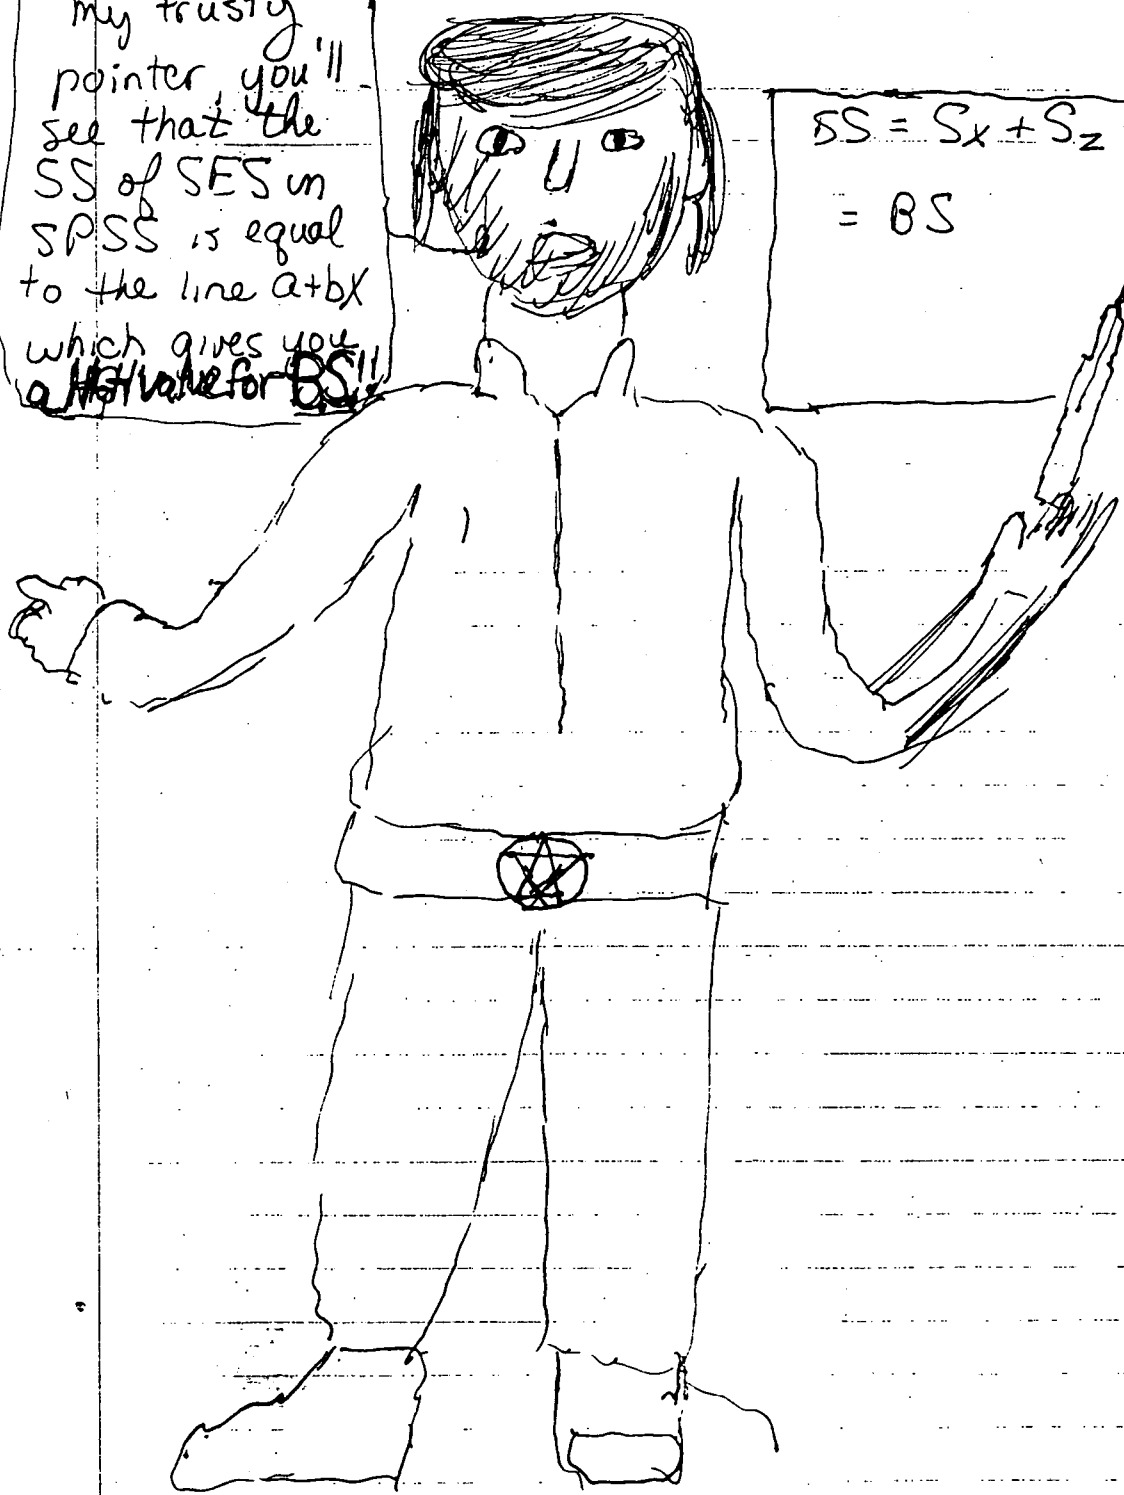 my trusty
pointer, you'll
see that the
SS of SES in
SPSS is equal
to the line a+bX
which gives you
a value for B.S.!!
SS = Sx + Sz
= BS